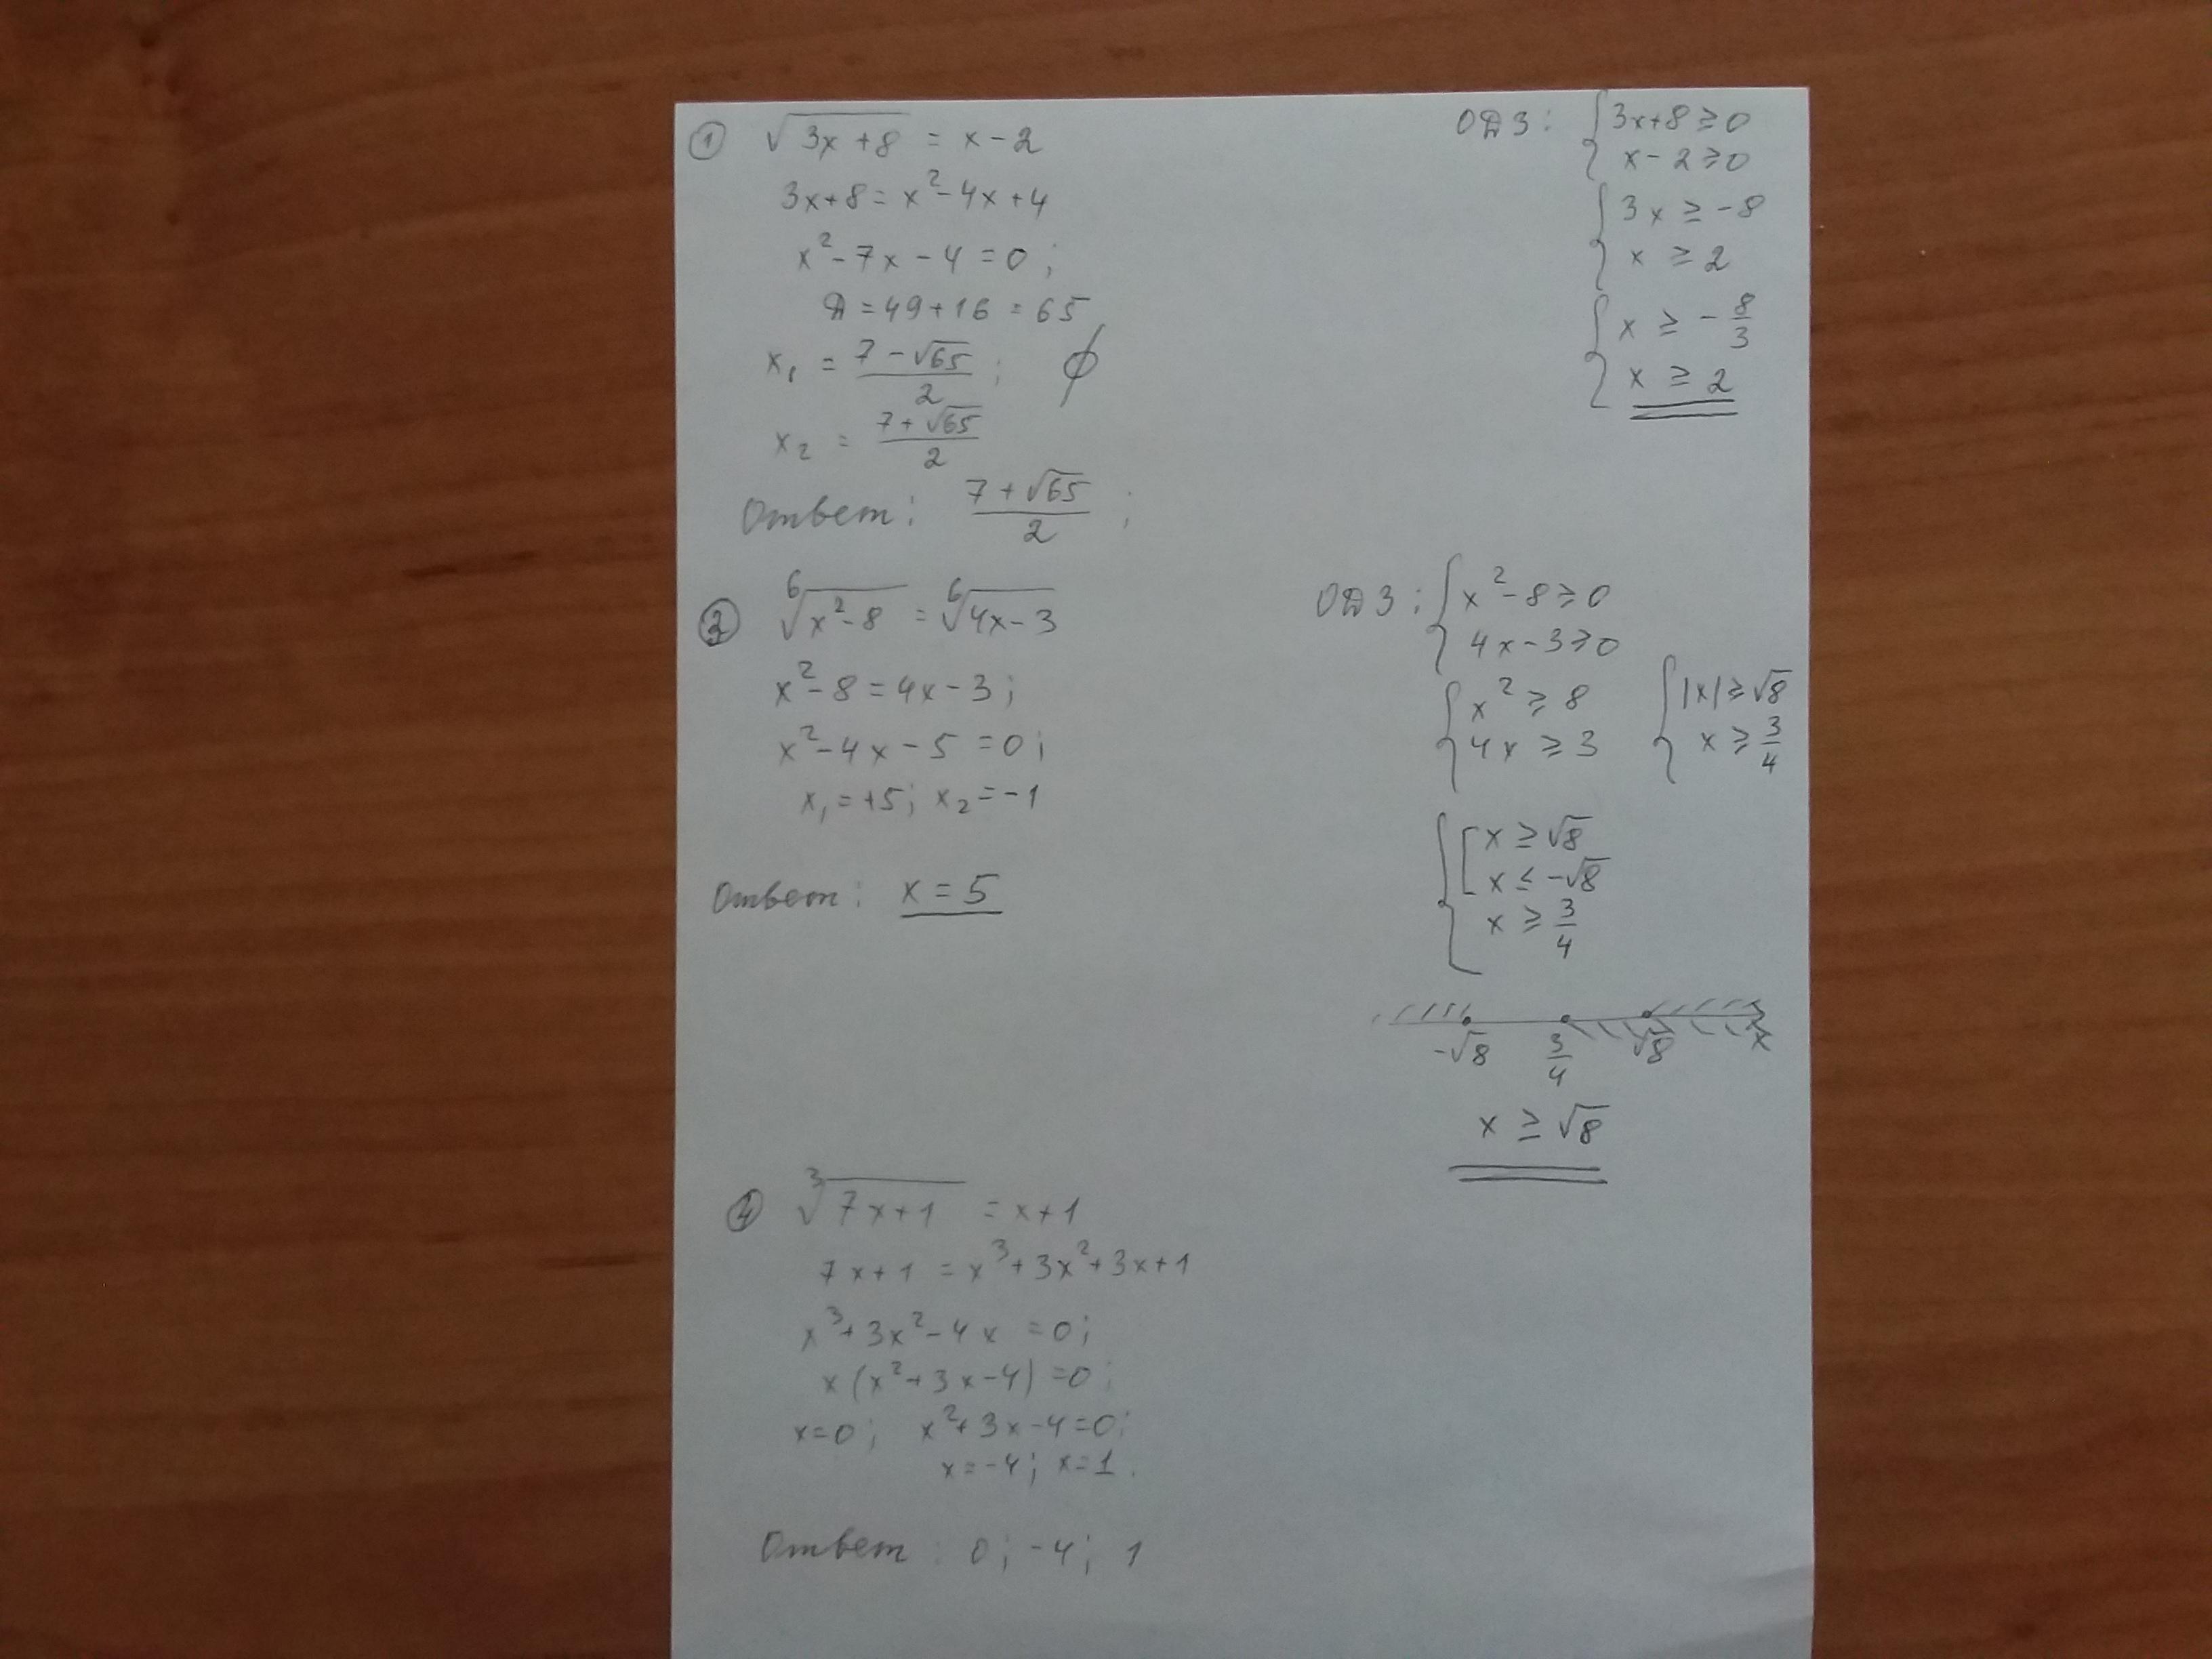 ① √(3x+8) = x-2
3x+8 = x²-4x+4
x²-7x-4 = 0;
D = 49+16 = 65
x₁ = (7-√65)/2; ∅
x₂ = (7+√65)/2
Ответ: (7+√65)/2;
ОДЗ: { 3x+8 ≥ 0
x-2 ≥ 0
{ 3x ≥ -8
x ≥ 2
{ x ≥ -8/3
x ≥ 2
② ⁶√(x²-8) = ⁶√(4x-3)
x²-8 = 4x-3;
x²-4x-5 = 0;
x₁ = +5; x₂ = -1
Ответ: x = 5
ОДЗ: { x²-8 ≥ 0
4x-3 ≥ 0
{ x² ≥ 8
4x ≥ 3
{ |x| ≥ √8
x ≥ 3/4
{ [ x ≥ √8
x ≤ -√8
x ≥ 3/4
-√8 3/4 √8 x
x ≥ √8
④ ³√(7x+1) = x+1
7x+1 = x³+3x²+3x+1
x³+3x²-4x = 0;
x(x²+3x-4) = 0;
x=0; x²+3x-4=0;
x=-4; x=1.
Ответ: 0; -4; 1